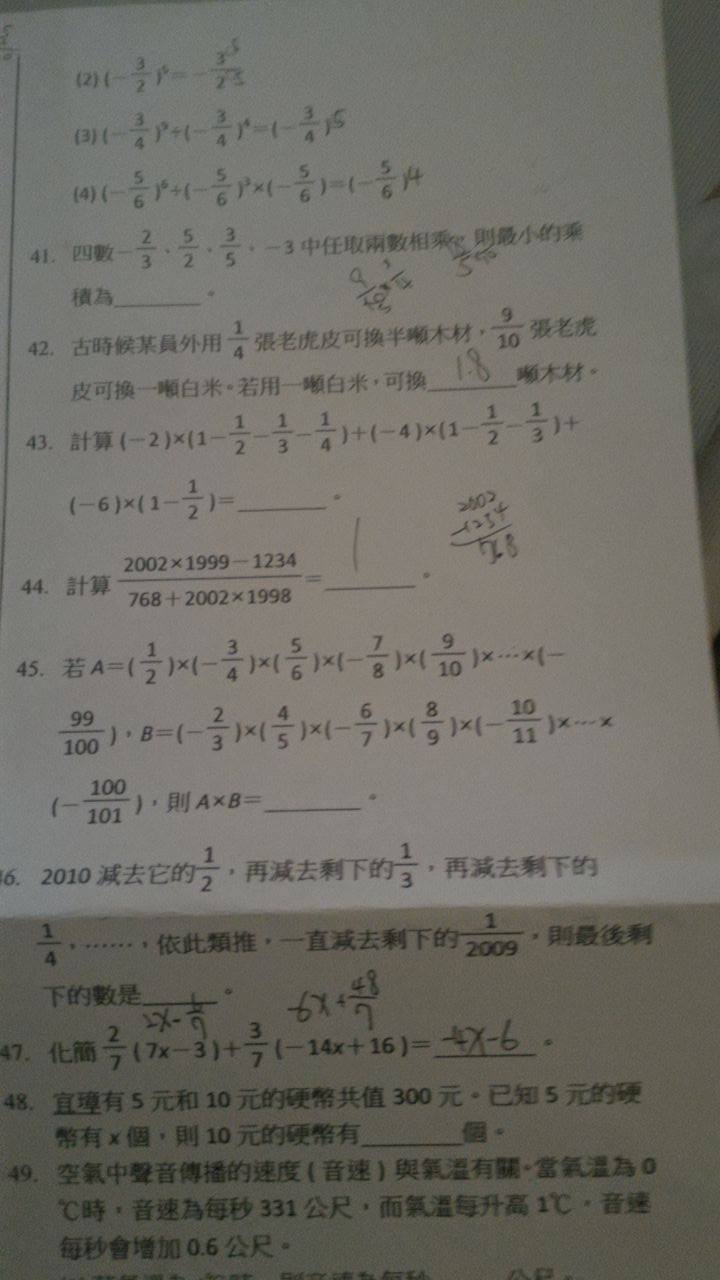 (2) (-3/2)⁵=-3⁵/2⁵
(3) (-3/4)⁹÷(-3/4)⁴=(-3/4)5
(4) (-5/6)⁶÷(-5/6)³×(-5/6)=(-5/6)4
41. 四數-2/3、5/2、3/5、-3中任取兩數相乘,則最小的乘
積為______。
42. 古時候某員外用1/4張老虎皮可換半噸木材,9/10張老虎
皮可換一噸白米。若用一噸白米,可換 1.8 噸木材。
43. 計算(-2)×(1-1/2-1/3-1/4)+(-4)×(1-1/2-1/3)+
(-6)×(1-1/2)=______。
2002
-1234
768
44. 計算 (2002×1999-1234)/(768+2002×1998)= 1 。
45. 若A=(1/2)×(-3/4)×(5/6)×(-7/8)×(9/10)×…×(-
99/100),B=(-2/3)×(4/5)×(-6/7)×(8/9)×(-10/11)×…×
(-100/101),則A×B=______。
46. 2010減去它的1/2,再減去剩下的1/3,再減去剩下的
1/4,……,依此類推,一直減去剩下的1/2009,則最後剩
下的數是______。
2x-6/7 -6x+48/7
47. 化簡2/7(7x-3)+3/7(-14x+16)= -4x-6 。
48. 宜璋有5元和10元的硬幣共值300元。已知5元的硬
幣有x個,則10元的硬幣有______個。
49. 空氣中聲音傳播的速度(音速)與氣溫有關。當氣溫為0
℃時,音速為每秒331公尺,而氣溫每升高1℃,音速
每秒會增加0.6公尺。